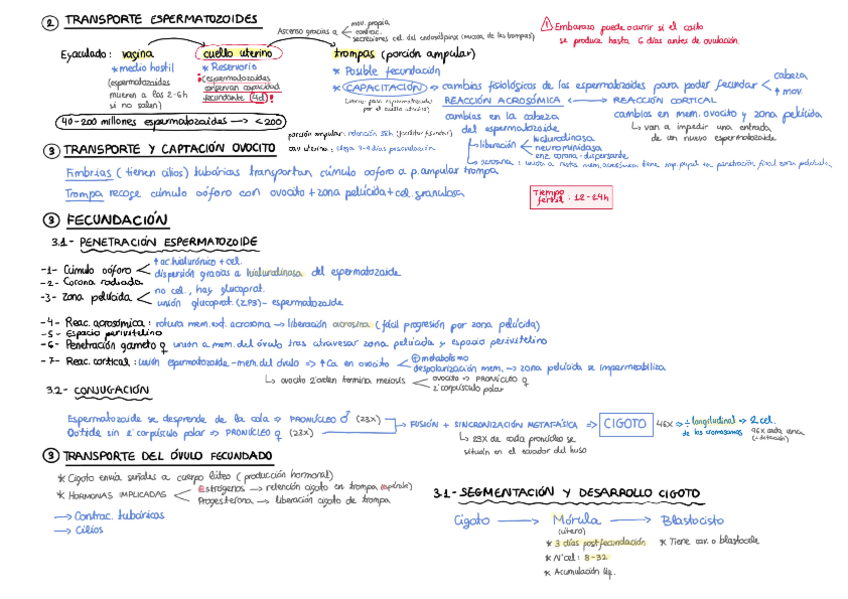 ② TRANSPORTE ESPERMATOZOIDES
Ascenso gracias a < mov. propia
contrac.
secreciones cel. del endosálpinx (mucosa de las trompas)
⚠ Embarazo puede ocurrir si el coito
se produce hasta 6 días antes de ovulación.
Eyaculado: vagina → cuello uterino → trompas (porción ampular)
* medio hostil
(espermatozoides
mueren a las 2-6h
si no salen)
* Reservorio
(espermatozoides
conservan capacidad
fecundante (4d)!
* Posible fecundación
* CAPACITACIÓN → cambios fisiológicos de los espermatozoides para poder fecundar < cabeza
↑ mov.
por el cuello uterino)
REACCIÓN ACROSÓMICA ↔ REACCIÓN CORTICAL
cambios en la cabeza
del espermatozoide
cambios en mem. ovocito y zona pelúcida
↳ van a impedir una entrada
de un nuevo espermatozoide
↳ liberación < hialuronidasa
neurominidasa
enz. corona-dispersante
40-200 millones espermatozoides → < 200
③ TRANSPORTE Y CAPTACIÓN OVOCITO
Fimbrias (tienen cilios) tubáricas transportan cúmulo ooforo a p. ampular trompa
Trompa recoge cúmulo oóforo con ovocito + zona pelúcida + cel. granulosa
Tiempo
fértil: 12-24h
③ FECUNDACIÓN
3.1- PENETRACIÓN ESPERMATOZOIDE
-1- Cúmulo oóforo < ↑ ac. hialurónico + cel.
dispersión gracias a hialuronidasa del espermatozoide
-2- Corona radiada
-3- Zona pelúcida < no cel., hay glucoprot.
unión glucoprot. (ZP3)- espermatozoide
-4- Reac. acrosómica: rotura mem. ext. acrosoma → liberación acrosina (fácil progresión por zona pelúcida)
-5- Espacio perivitelino
-6- Penetración gameto ♀ unión a mem. del óvulo tras atravesar zona pelúcida y espacio perivitelino
-7- Reac. cortical: unión espermatozoide-mem. del óvulo => ↑ Ca en ovocito < ⊕ metabolismo
despolarización mem. → zona pelúcida se impermeabiliza
↳ ovocito 2ºorden termina meiosis < ovocito => PRONÚCLEO ♀
2º corpúsculo polar
3.2- CONJUGACIÓN
Espermatozoide se desprende de la cola => PRONÚCLEO ♂ (23X)
Oótide sin 2º corpúsculo polar => PRONÚCLEO ♀ (23X)
→ FUSIÓN + SINCRONIZACIÓN METAFÁSICA => CIGOTO 46X => ÷ longitudinal → 2 cel.
de los cromosomas
↳ 23X de cada pronúcleo se
sitúan en el ecuador del huso
③ TRANSPORTE DEL ÓVULO FECUNDADO
* Cigoto envía señales a cuerpo lúteo (producción hormonal)
* HORMONAS IMPLICADAS < Estrógenos → retención cigoto en trompa
Progesterona → liberación cigoto de trompa
→ Contrac. tubáricas
→ Cilios
3.1- SEGMENTACIÓN Y DESARROLLO CIGOTO
Cigoto → Mórula → Blastocisto
(útero)
* 3 días postfecundación
* Nºcel: 8-32
* Acumulación líq.
* Tiene cav. o blastocele